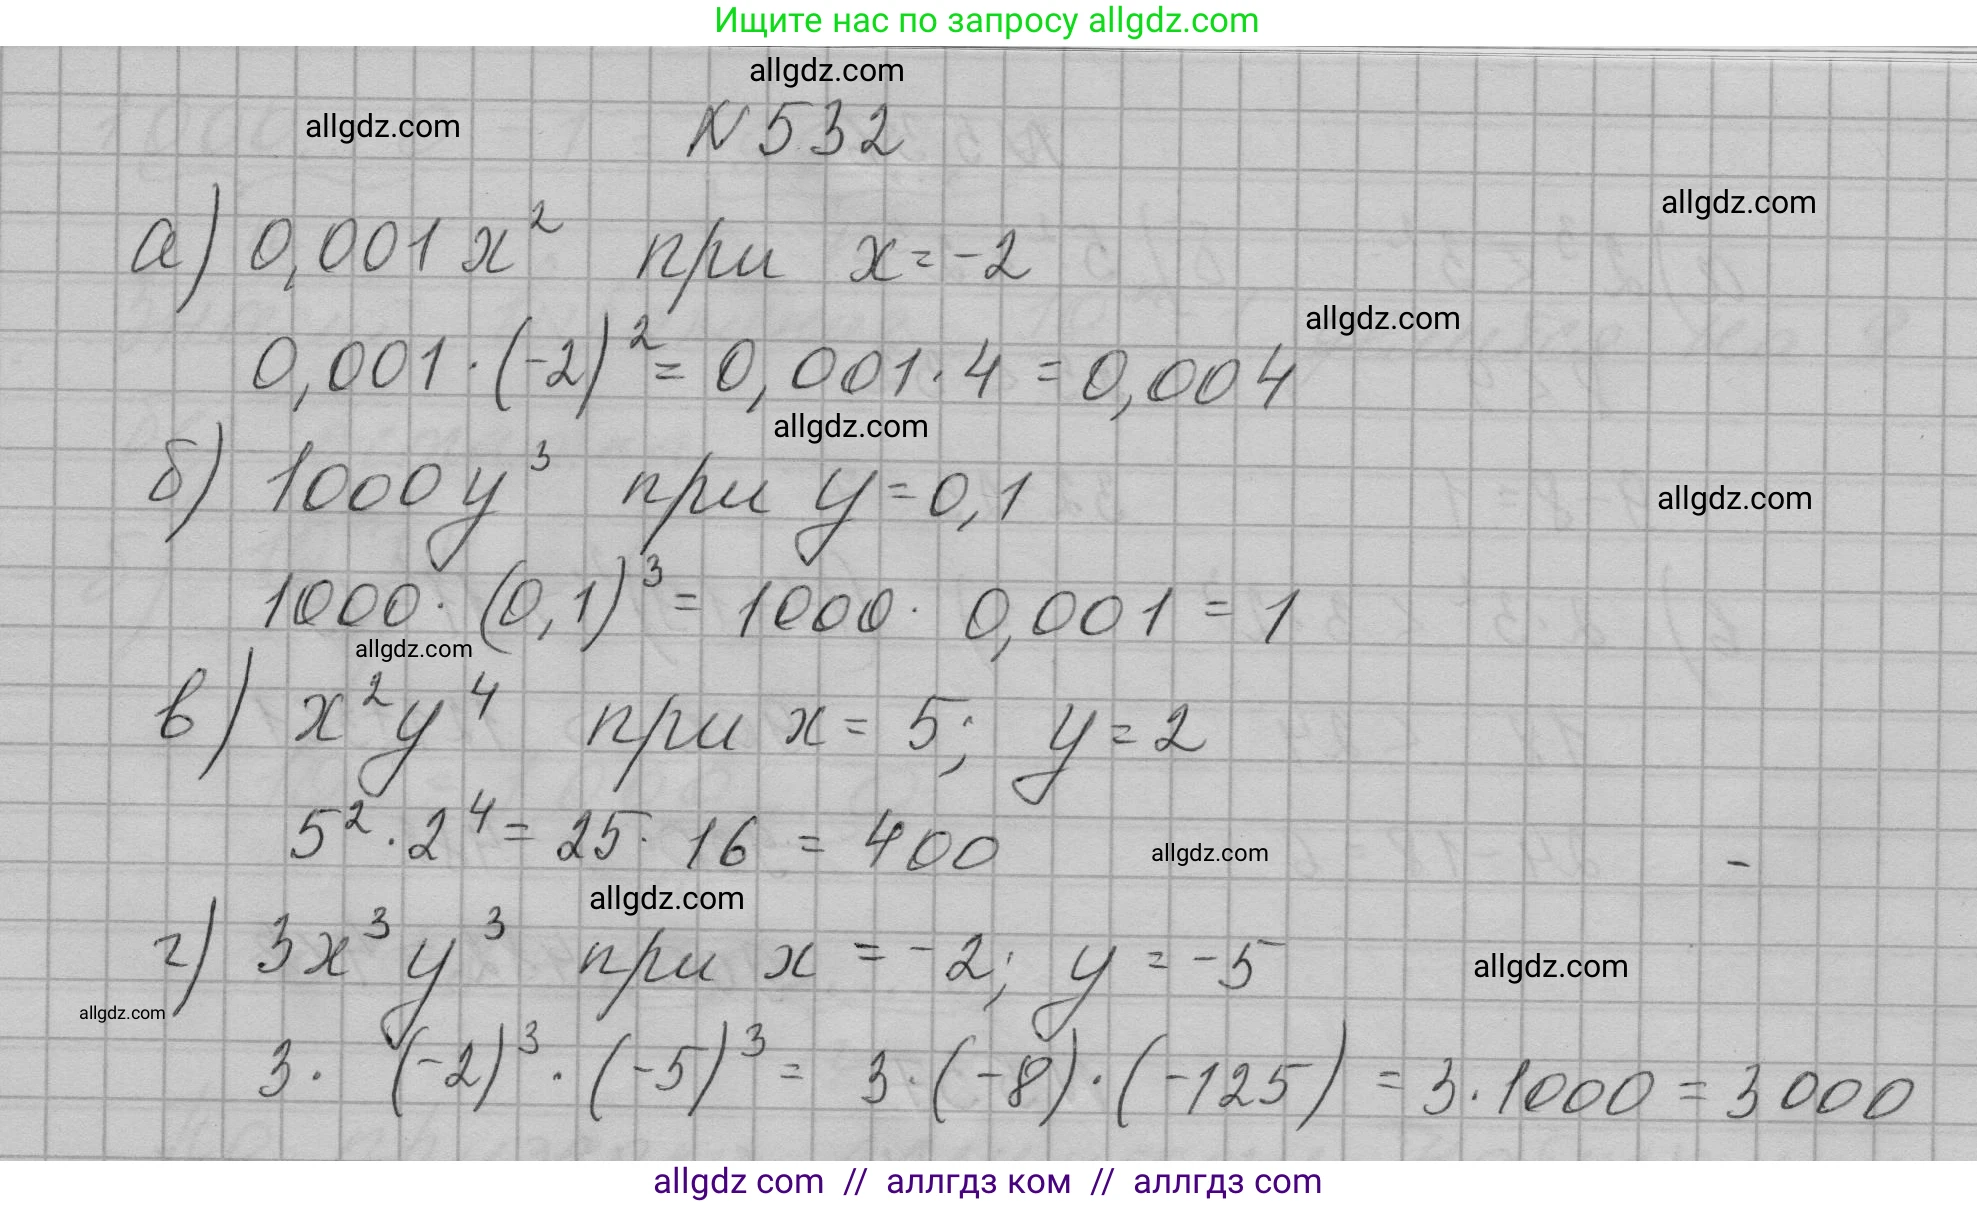 Ищите нас по запросу allgdz.com
allgdz.com
allgdz.com
N 532
allgdz.com
а) 0,001x² при x = -2
allgdz.com
0,001 · (-2)² = 0,001 · 4 = 0,004
allgdz.com
б) 1000y³ при y = 0,1
allgdz.com
1000 · (0,1)³ = 1000 · 0,001 = 1
allgdz.com
в) x²y⁴ при x = 5; y = 2
5² · 2⁴ = 25 · 16 = 400
allgdz.com
allgdz.com
г) 3x³y³ при x = -2; y = -5
allgdz.com
allgdz.com
3 · (-2)³ · (-5)³ = 3 · (-8) · (-125) = 3 · 1000 = 3000
allgdz com // аллгдз ком // аллгдз com